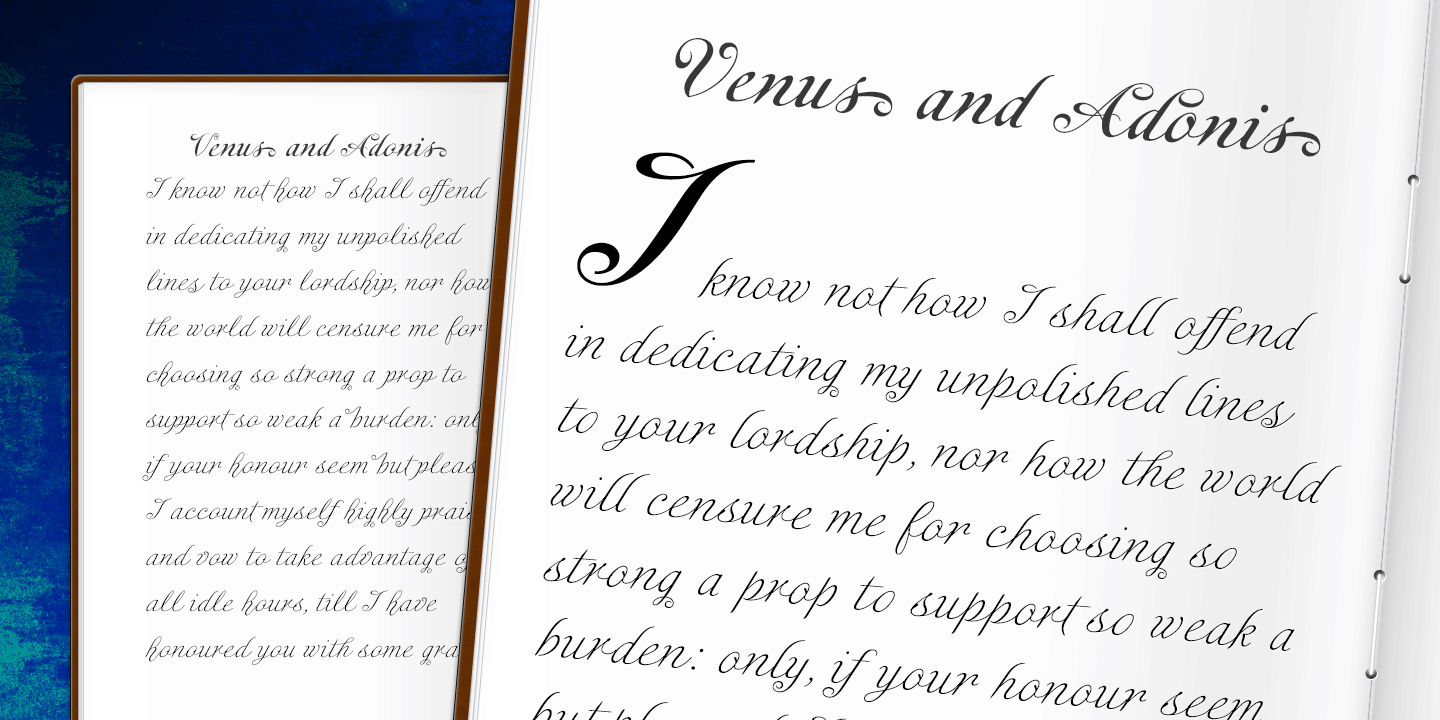 Venus and Adonis
I know not how I shall offend
in dedicating my unpolished
lines to your lordship, nor how
the world will censure me for
choosing so strong a prop to
support so weak a burden:
if your honour seem but
I account myself highly
and vow to take advantage
all idle hours, till I have
honoured you with some
Venus and Adonis
I know not how I shall offend
in dedicating my unpolished lines
to your lordship, nor how the world
will censure me for choosing so
strong a prop to support so weak a
burden: only, if your honour seem
but